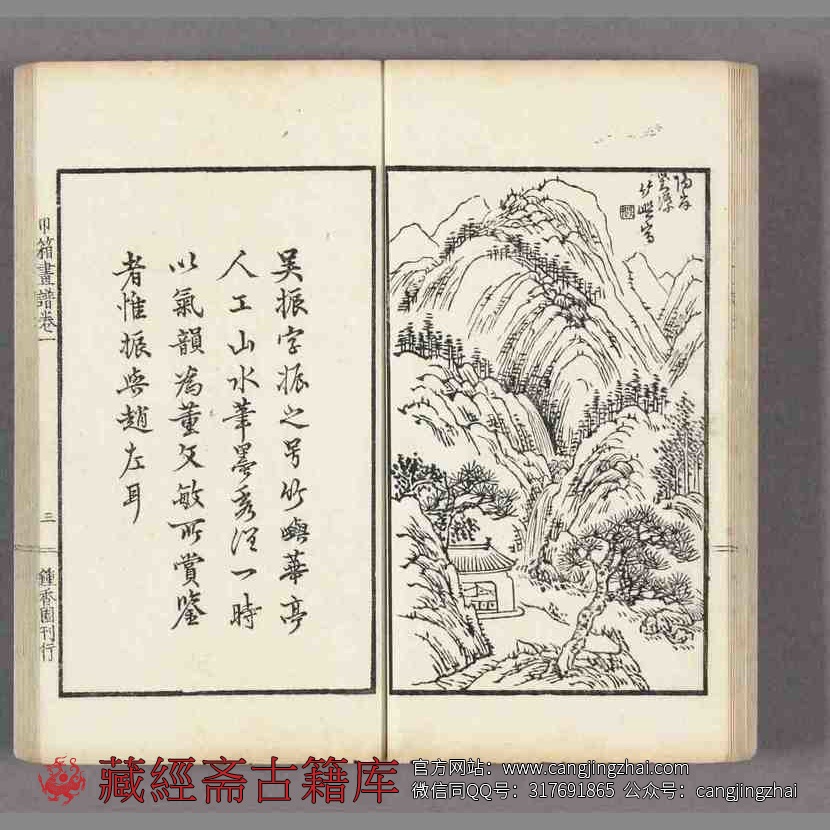 陽岸
積漆
竹嶼寫
吳振字振之号竹嶼華亭
人工山水筆墨秀潤一時
以氣韻為董文敏所賞鑒
者惟振與趙左耳
甲箱畫譜卷一
三
鍾香園刊行
藏經斋古籍库
官方网站：www.cangjingzhai.com
微信同QQ号：317691865 公众号：cangjingzhai